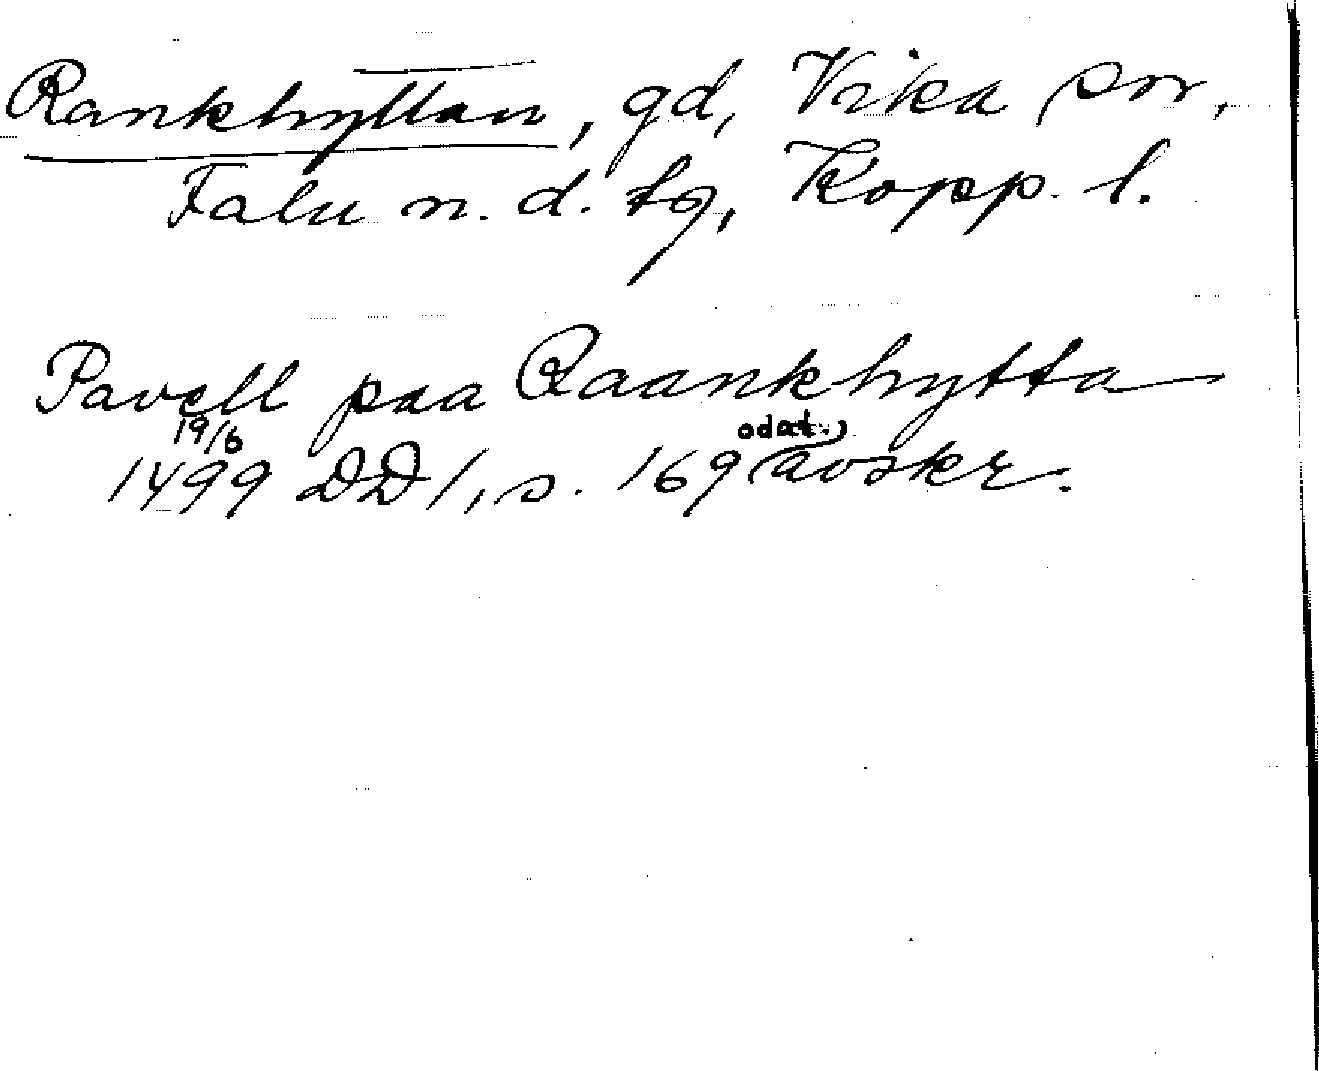 Rankhyttan, gd, Vika sn,
Falu n. d. tg, Kopp. l.
Pavell paa Raankhytta
19/6 odat.
1499 DD 1, s. 169 avskr.